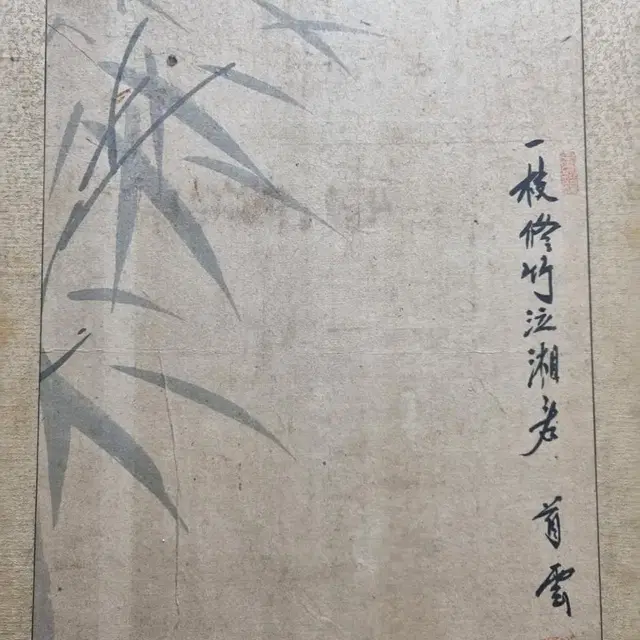 一枝修竹泣湘君
雲